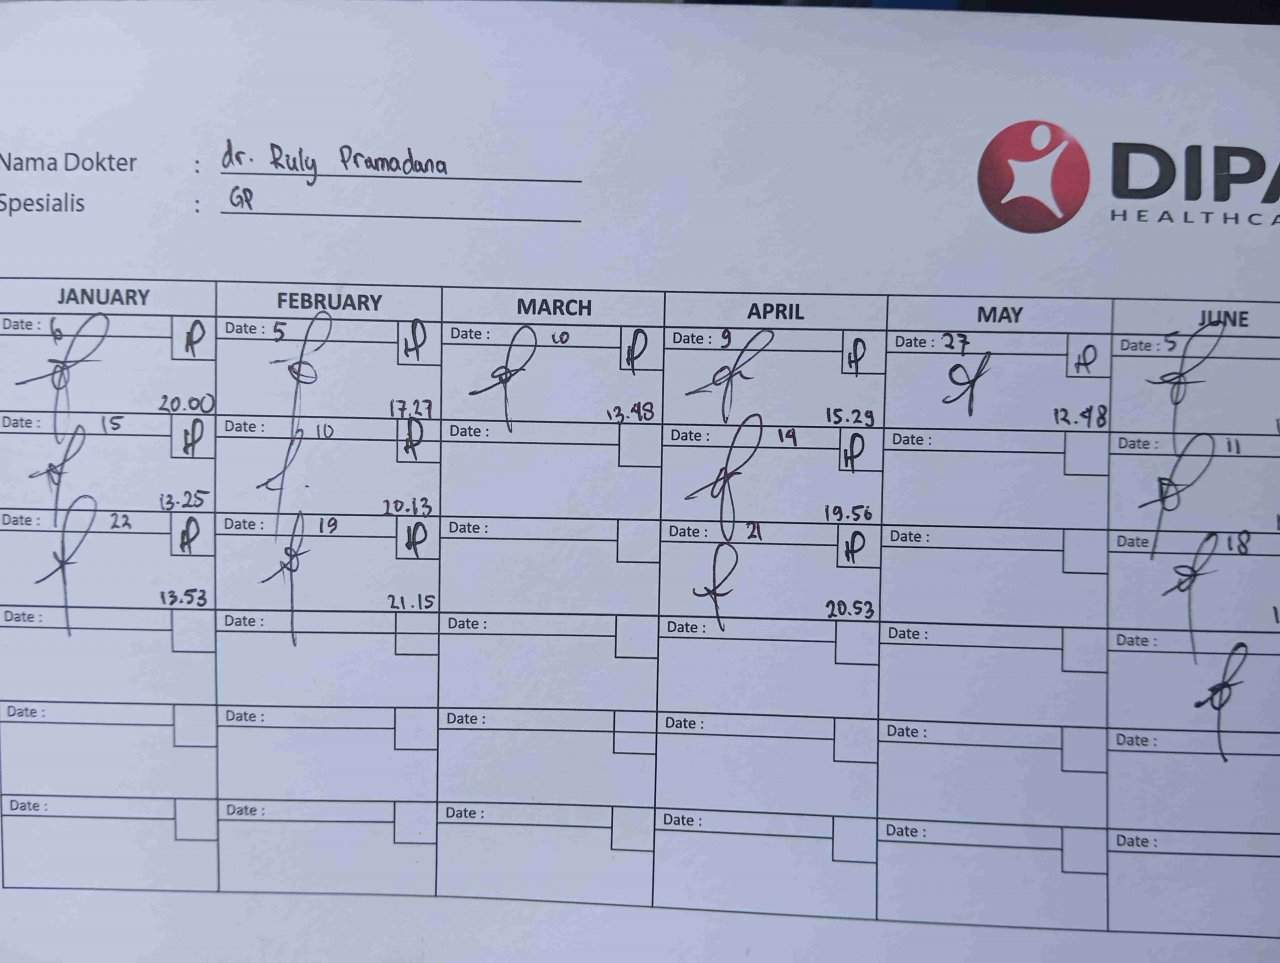 Nama Dokter : dr. Ruly Pramadana
Spesialis : GP
DIPA
HEALTHCA
JANUARY FEBRUARY MARCH APRIL MAY JUNE
Date : 6 Date : 5 Date : 10 Date : 9 Date : 27 Date : 5
20.00 17.27 13.48 15.29 12.48
Date : 15 Date : 10 Date : Date : 14 Date : Date : 11
13.25 20.13 19.56
Date : 22 Date : 19 Date : Date : 21 Date : Date 18
13.53 21.15 20.53
Date : Date : Date : Date : Date : Date :
Date : Date : Date : Date : Date : Date :
Date : Date : Date : Date : Date : Date :